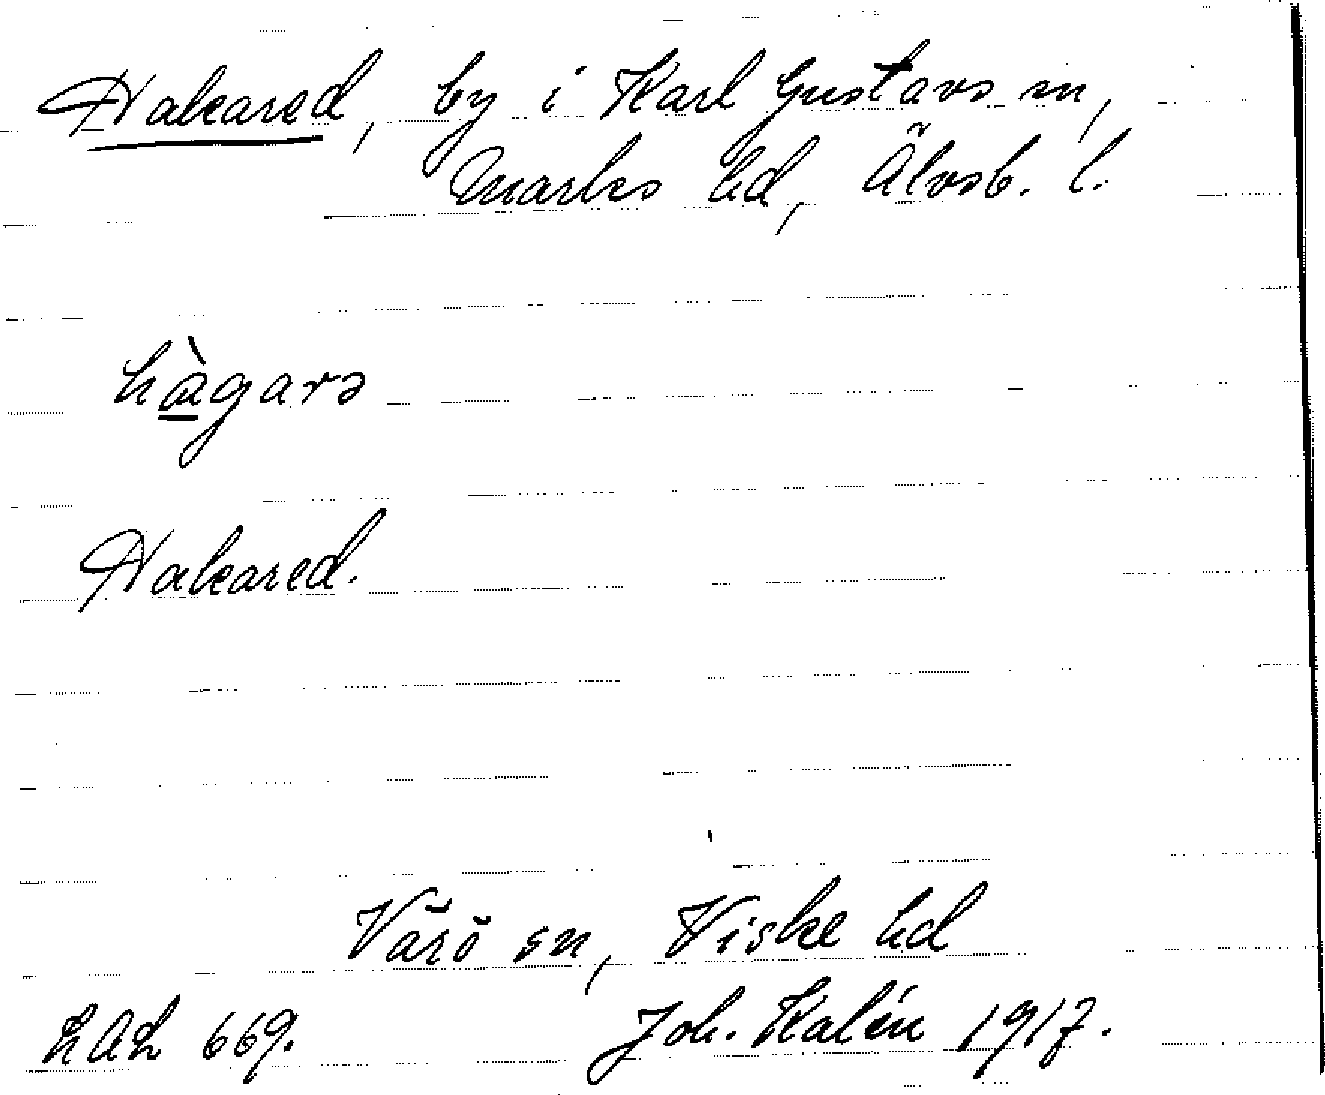 Hakared, by i Karl Gustavs sn,
Marks hd, Älvsb. l.
hàgarə
Hakared.
Värö sn, Viske hd
LAL 669. Joh. Kalén 1917.